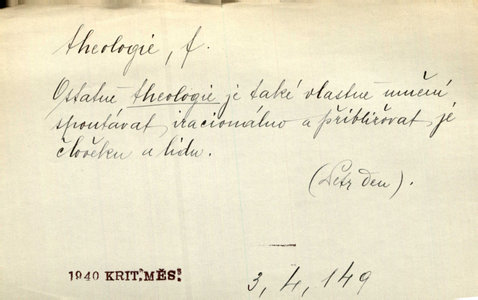 theologie, f.
Ostatně theologie je také vlastně umění
spoutávat iracionálno a přibližovat je
člověku a lidu.
(Petr den).
1940 KRIT. MĚS.
3, 4, 149